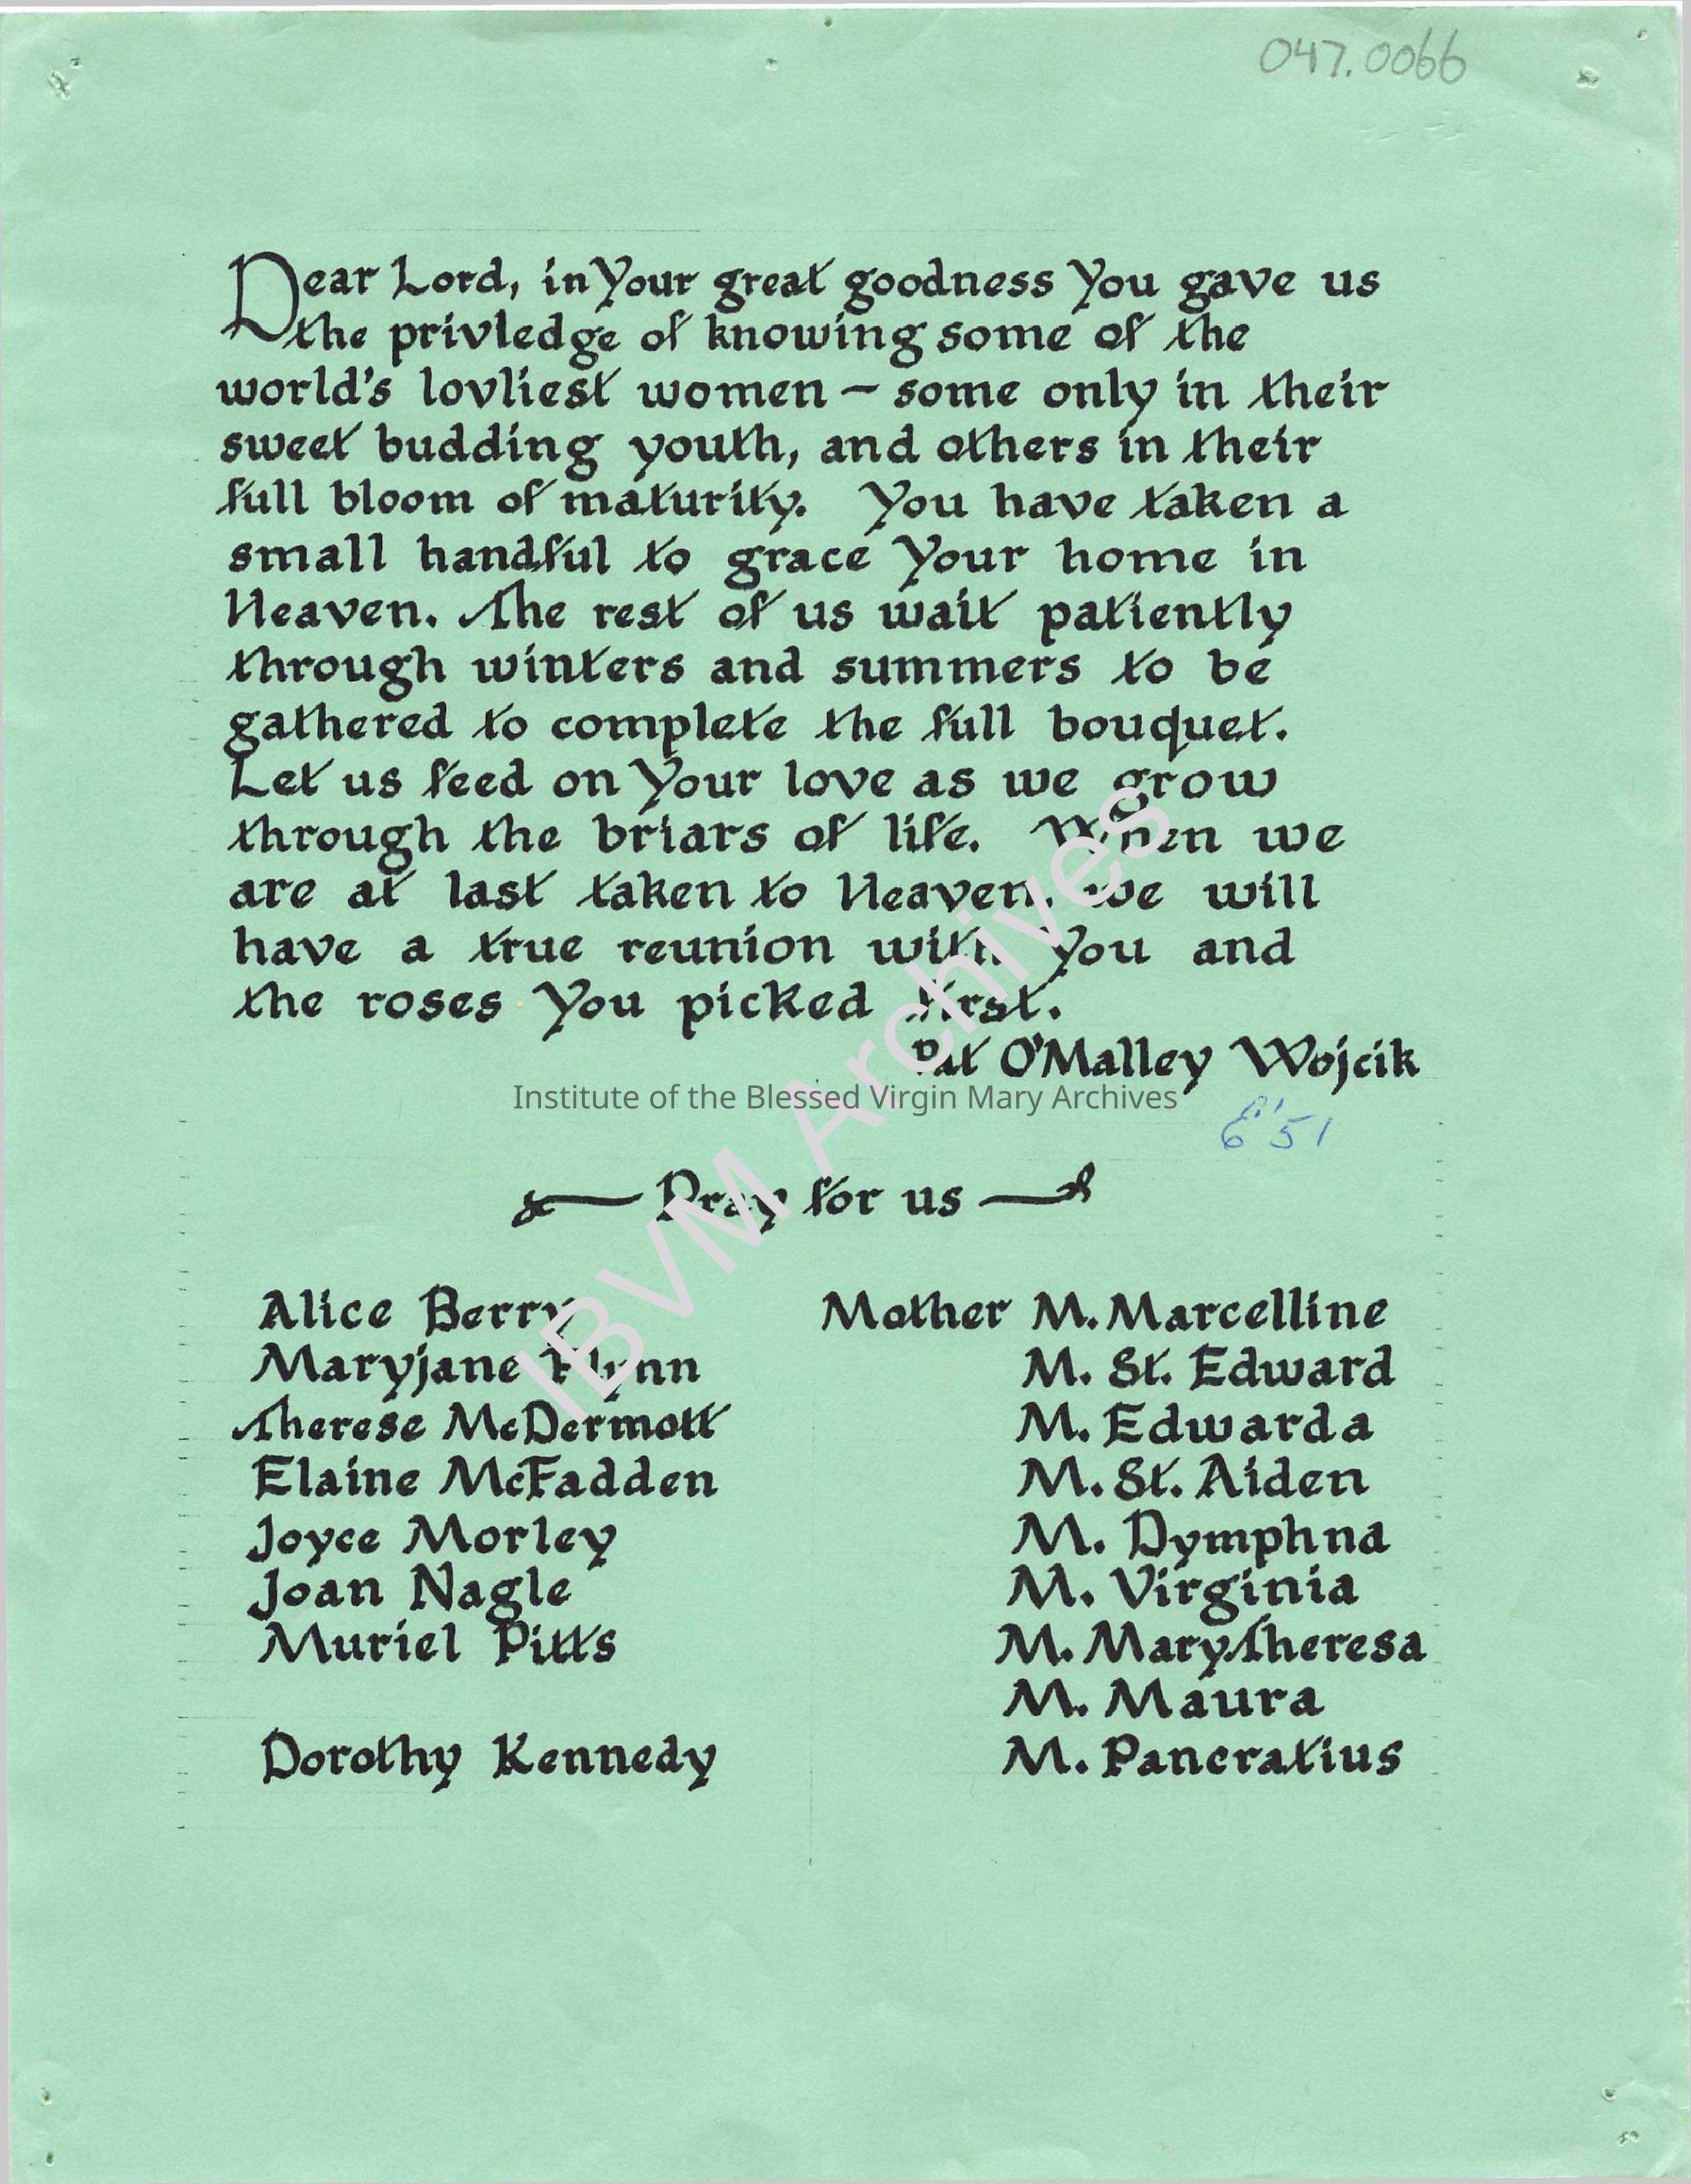 047.0066
Dear Lord, in Your great goodness You gave us
the privledge of knowing some of the
world's lovliest women – some only in their
sweet budding youth, and others in their
full bloom of maturity. You have taken a
small handful to grace Your home in
Heaven. The rest of us wait patiently
through winters and summers to be
gathered to complete the full bouquet.
Let us feed on Your love as we grow
through the briars of life. When we
are at last taken to Heaven, we will
have a true reunion with You and
the roses You picked first.
Pat O'Malley Wojcik
Institute of the Blessed Virgin Mary Archives
IBVM Archives
'51
Pray for us
Alice Berry
Maryjane Flynn
Therese McDermott
Elaine McFadden
Joyce Morley
Joan Nagle
Muriel Pitts
Dorothy Kennedy
Mother M. Marcelline
M. St. Edward
M. Edwarda
M. St. Aiden
M. Dymphna
M. Virginia
M. Mary Theresa
M. Maura
M. Pancratius